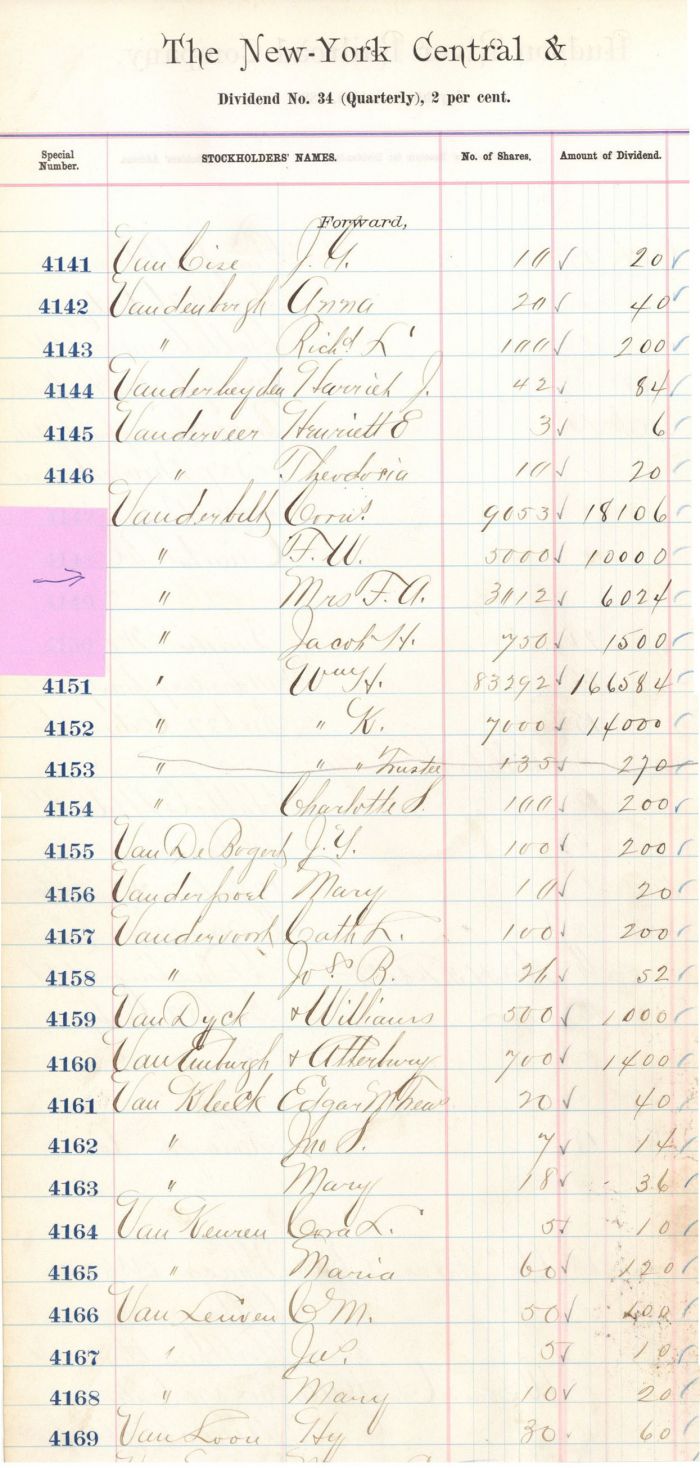 The New-York Central &
Dividend No. 34 (Quarterly), 2 per cent.
Special Number. STOCKHOLDERS' NAMES. No. of Shares. Amount of Dividend.
Forward,
4141 Van Cise J. Y. 10 20
4142 Vandenbergh Anna 20 40
4143 " Richd. L 100 200
4144 Vanderheyden Harriet J. 42 84
4145 Vanderveer Henriett E 3 6
4146 " Theodosia 10 20
Vanderbilt Corns. 9053 18106
" F. W. 5000 10000
" Mrs F. A. 3012 6024
" Jacob H. 750 1500
4151 " Wm H. 83292 166584
4152 " " K. 7000 14000
4153 " " " Trustee 135 270
4154 " Charlotte S. 100 200
4155 Van De Bogert J. Y. 100 200
4156 Vanderpoel Mary 10 20
4157 Vandervoort Cath L. 100 200
4158 " Jos. B. 26 52
4159 Van Dyck & Williams 500 1000
4160 Van Emburgh & Atterbury 700 1400
4161 Van Kleeck Edgar 20 40
4162 " Jno S. 7 14
4163 " Mary 18 36
4164 Van Keuren Cora L. 5 10
4165 " Maria 60 120
4166 Van Leuven C M. 50 100
4167 " Jas. 5 10
4168 " Mary 10 20
4169 Van Loon Hy 30 60